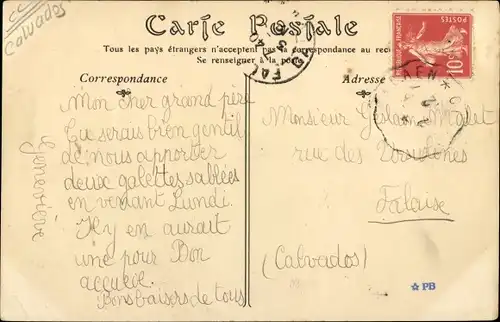 CC
Calvados
Carte Postale
Tous les pays étrangers n'acceptent pas la correspondance au recto
Se renseigner à la poste
Correspondance
Adresse
POSTES
REPUBLIQUE FRANÇAISE
10c
CAEN
FAL
Mon cher grand père
Tu serais bien gentil
de nous apporter
deux galettes sablées
en venant Lundi.
Il y en aurait
une pour Bon
accueil.
Bons baisers de tous
Geneviève
Monsieur Malet
rue des
Falaise
(Calvados)
PB